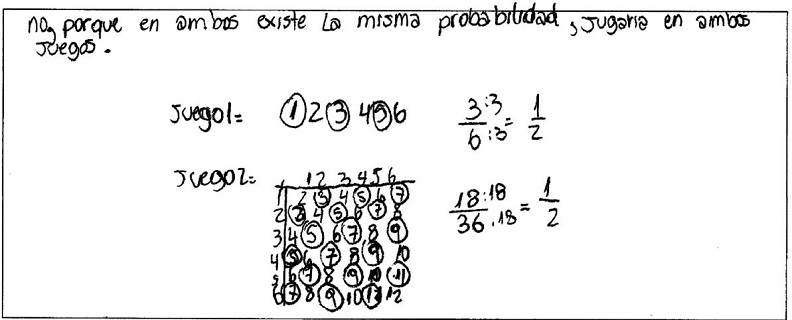 no, porque en ambos existe la misma probabilidad, jugaria en ambos
juegos.
Juego1= 1 2 3 4 5 6 3:3/6:3 = 1/2
Juego2=
+ 1 2 3 4 5 6
1 2 3 4 5 6 7
2 3 4 5 6 7 8
3 4 5 6 7 8 9
4 5 6 7 8 9 10
5 6 7 8 9 10 11
6 7 8 9 10 11 12
18:18/36:18 = 1/2